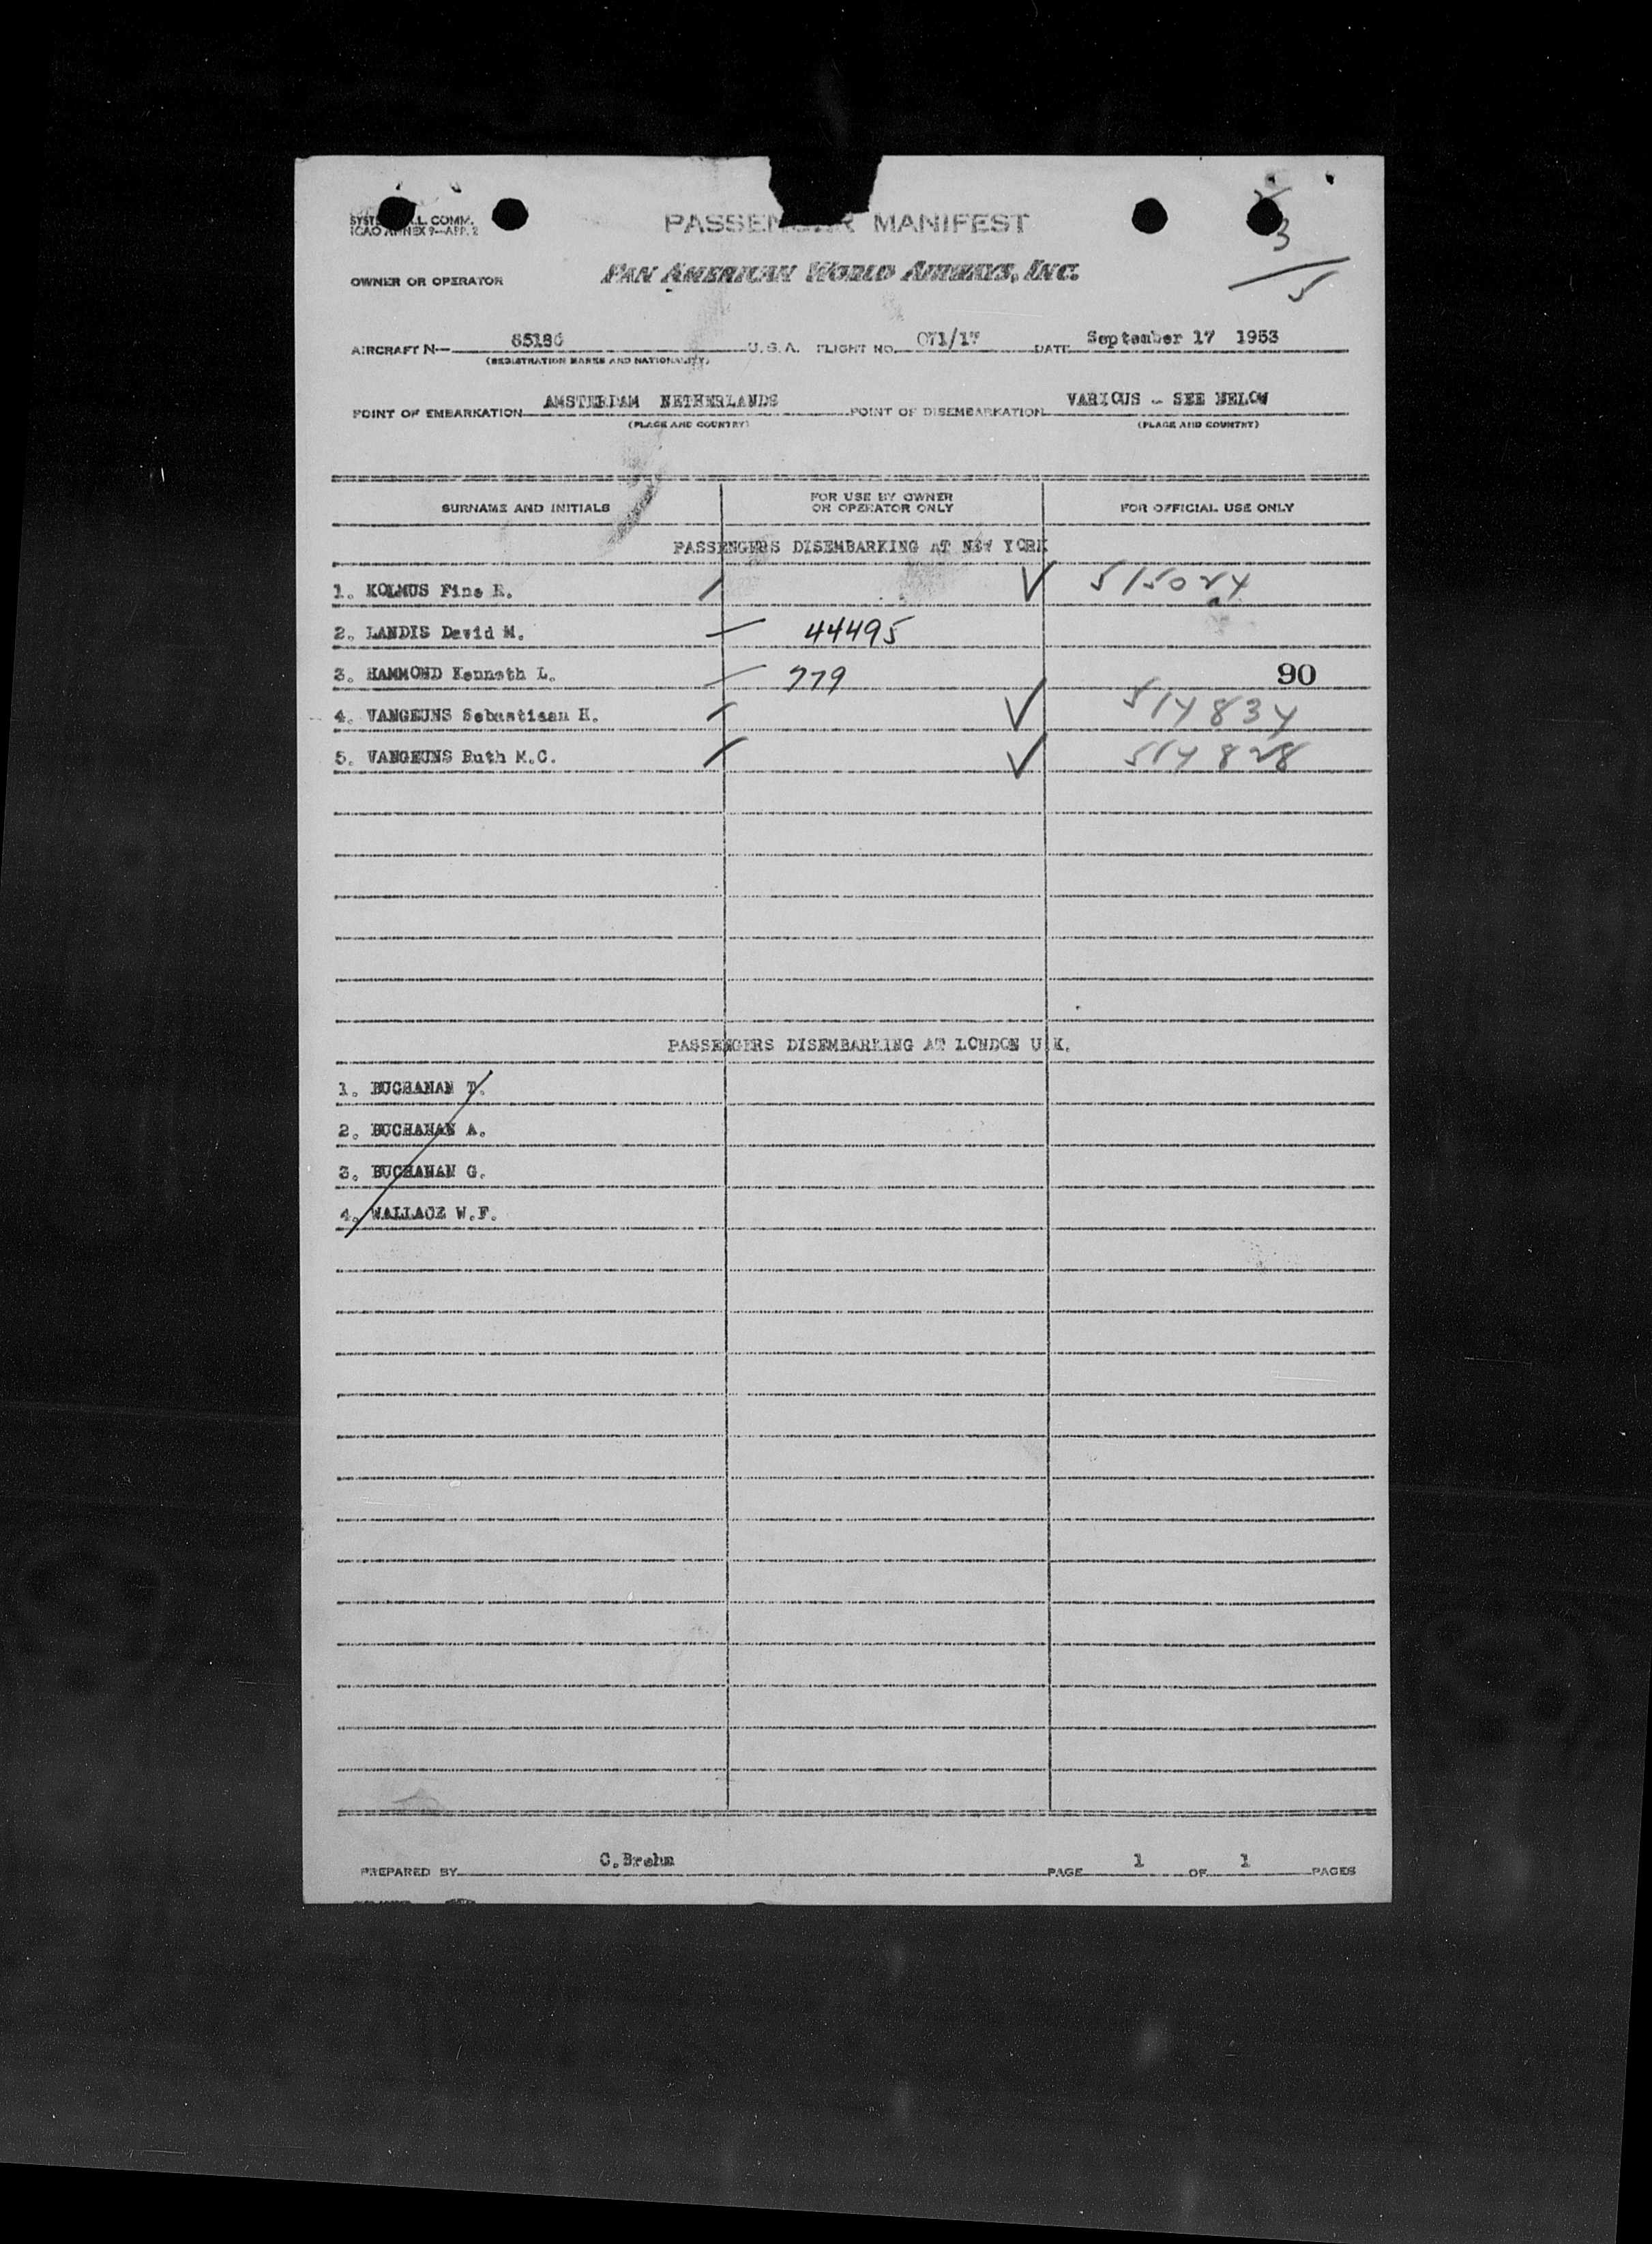 PASSENGER MANIFEST
L. COMM.
ICAO ANNEX 9—APP. 2
3
5
OWNER OR OPERATOR PAN AMERICAN WORLD AIRWAYS, INC.
AIRCRAFT N— U.S.A. FLIGHT NO. 071/17 DATE September 17 1953
(REGISTRATION MARKS AND NATIONALITY)
POINT OF EMBARKATION AMSTERDAM NETHERLANDS POINT OF DISEMBARKATION VARIOUS - SEE NELOW
(PLACE AND COUNTRY) (PLACE AND COUNTRY)
SURNAME AND INITIALS FOR USE BY OWNER OR OPERATOR ONLY FOR OFFICIAL USE ONLY
PASSENGERS DISEMBARKING AT NEW YORK
1. KOLMUS Fine ✓ 515024
2. LANDIS David M. 44495
3. HAMMOND Kenneth L. 779 90
4. VANGEUNS Sebastiaan H. ✓ 514834
5. VANGEUNS Ruth M.C. ✓ 514828
PASSENGERS DISEMBARKING AT LONDON U.K.
1. BUCHANAN T.
2. BUCHANAN A.
3. BUCHANAN G.
4. WALLACE W.F.
PREPARED BY C.Brehm PAGE 1 OF 1 PAGES